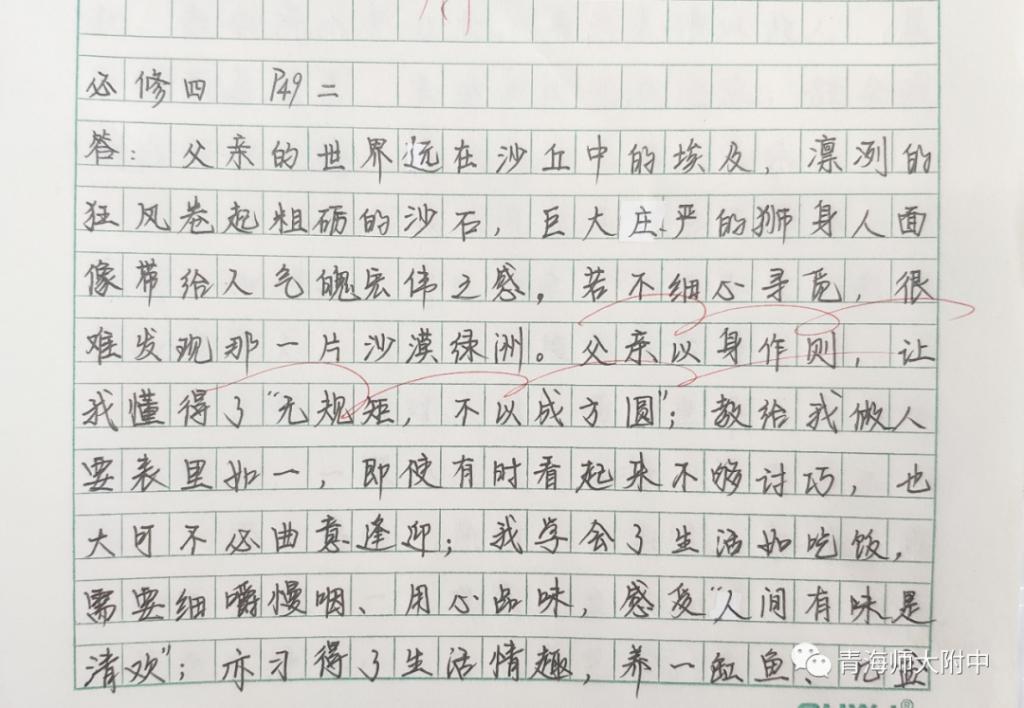 必修四 P49 二
答：父亲的世界远在沙丘中的埃及，凛冽的
狂风卷起粗砺的沙石，巨大庄严的狮身人面
像带给人气魄宏伟之感。若不细心寻觅，很
难发现那一片沙漠绿洲。父亲以身作则，让
我懂得了“无规矩，不以成方圆”；教给我做人
要表里如一，即使有时看起来不够讨巧，也
大可不必曲意逢迎；我学会了生活如吃饭，
需要细嚼慢咽、用心品味，感受“人间有味是
清欢”；亦习得了生活情趣，养一缸鱼、
青海师大附中